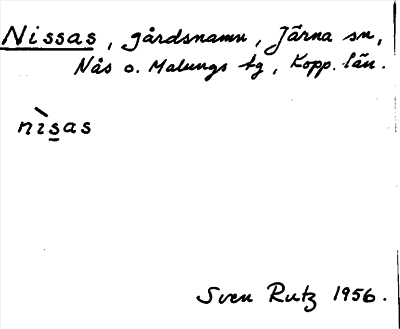 Nissas, gårdsnamn, Järna sn,
Nås o. Malungs tg, Kopp. län.
nìsas
Sven Rutz 1956.